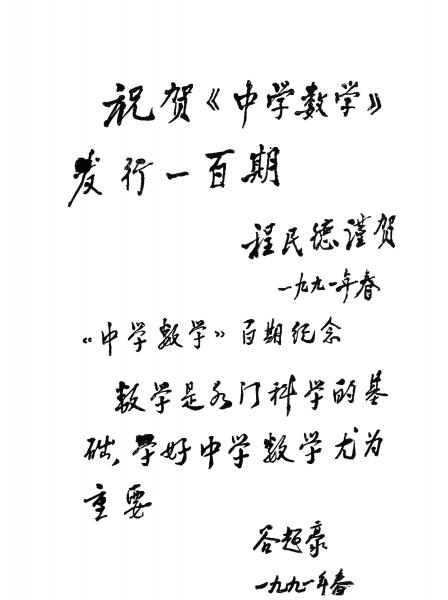 祝贺《中学数学》
发行一百期
程民德谨贺
一九九一年春
《中学数学》百期纪念
数学是各门科学的基
础,学好中学数学尤为
重要
谷超豪
一九九一年春